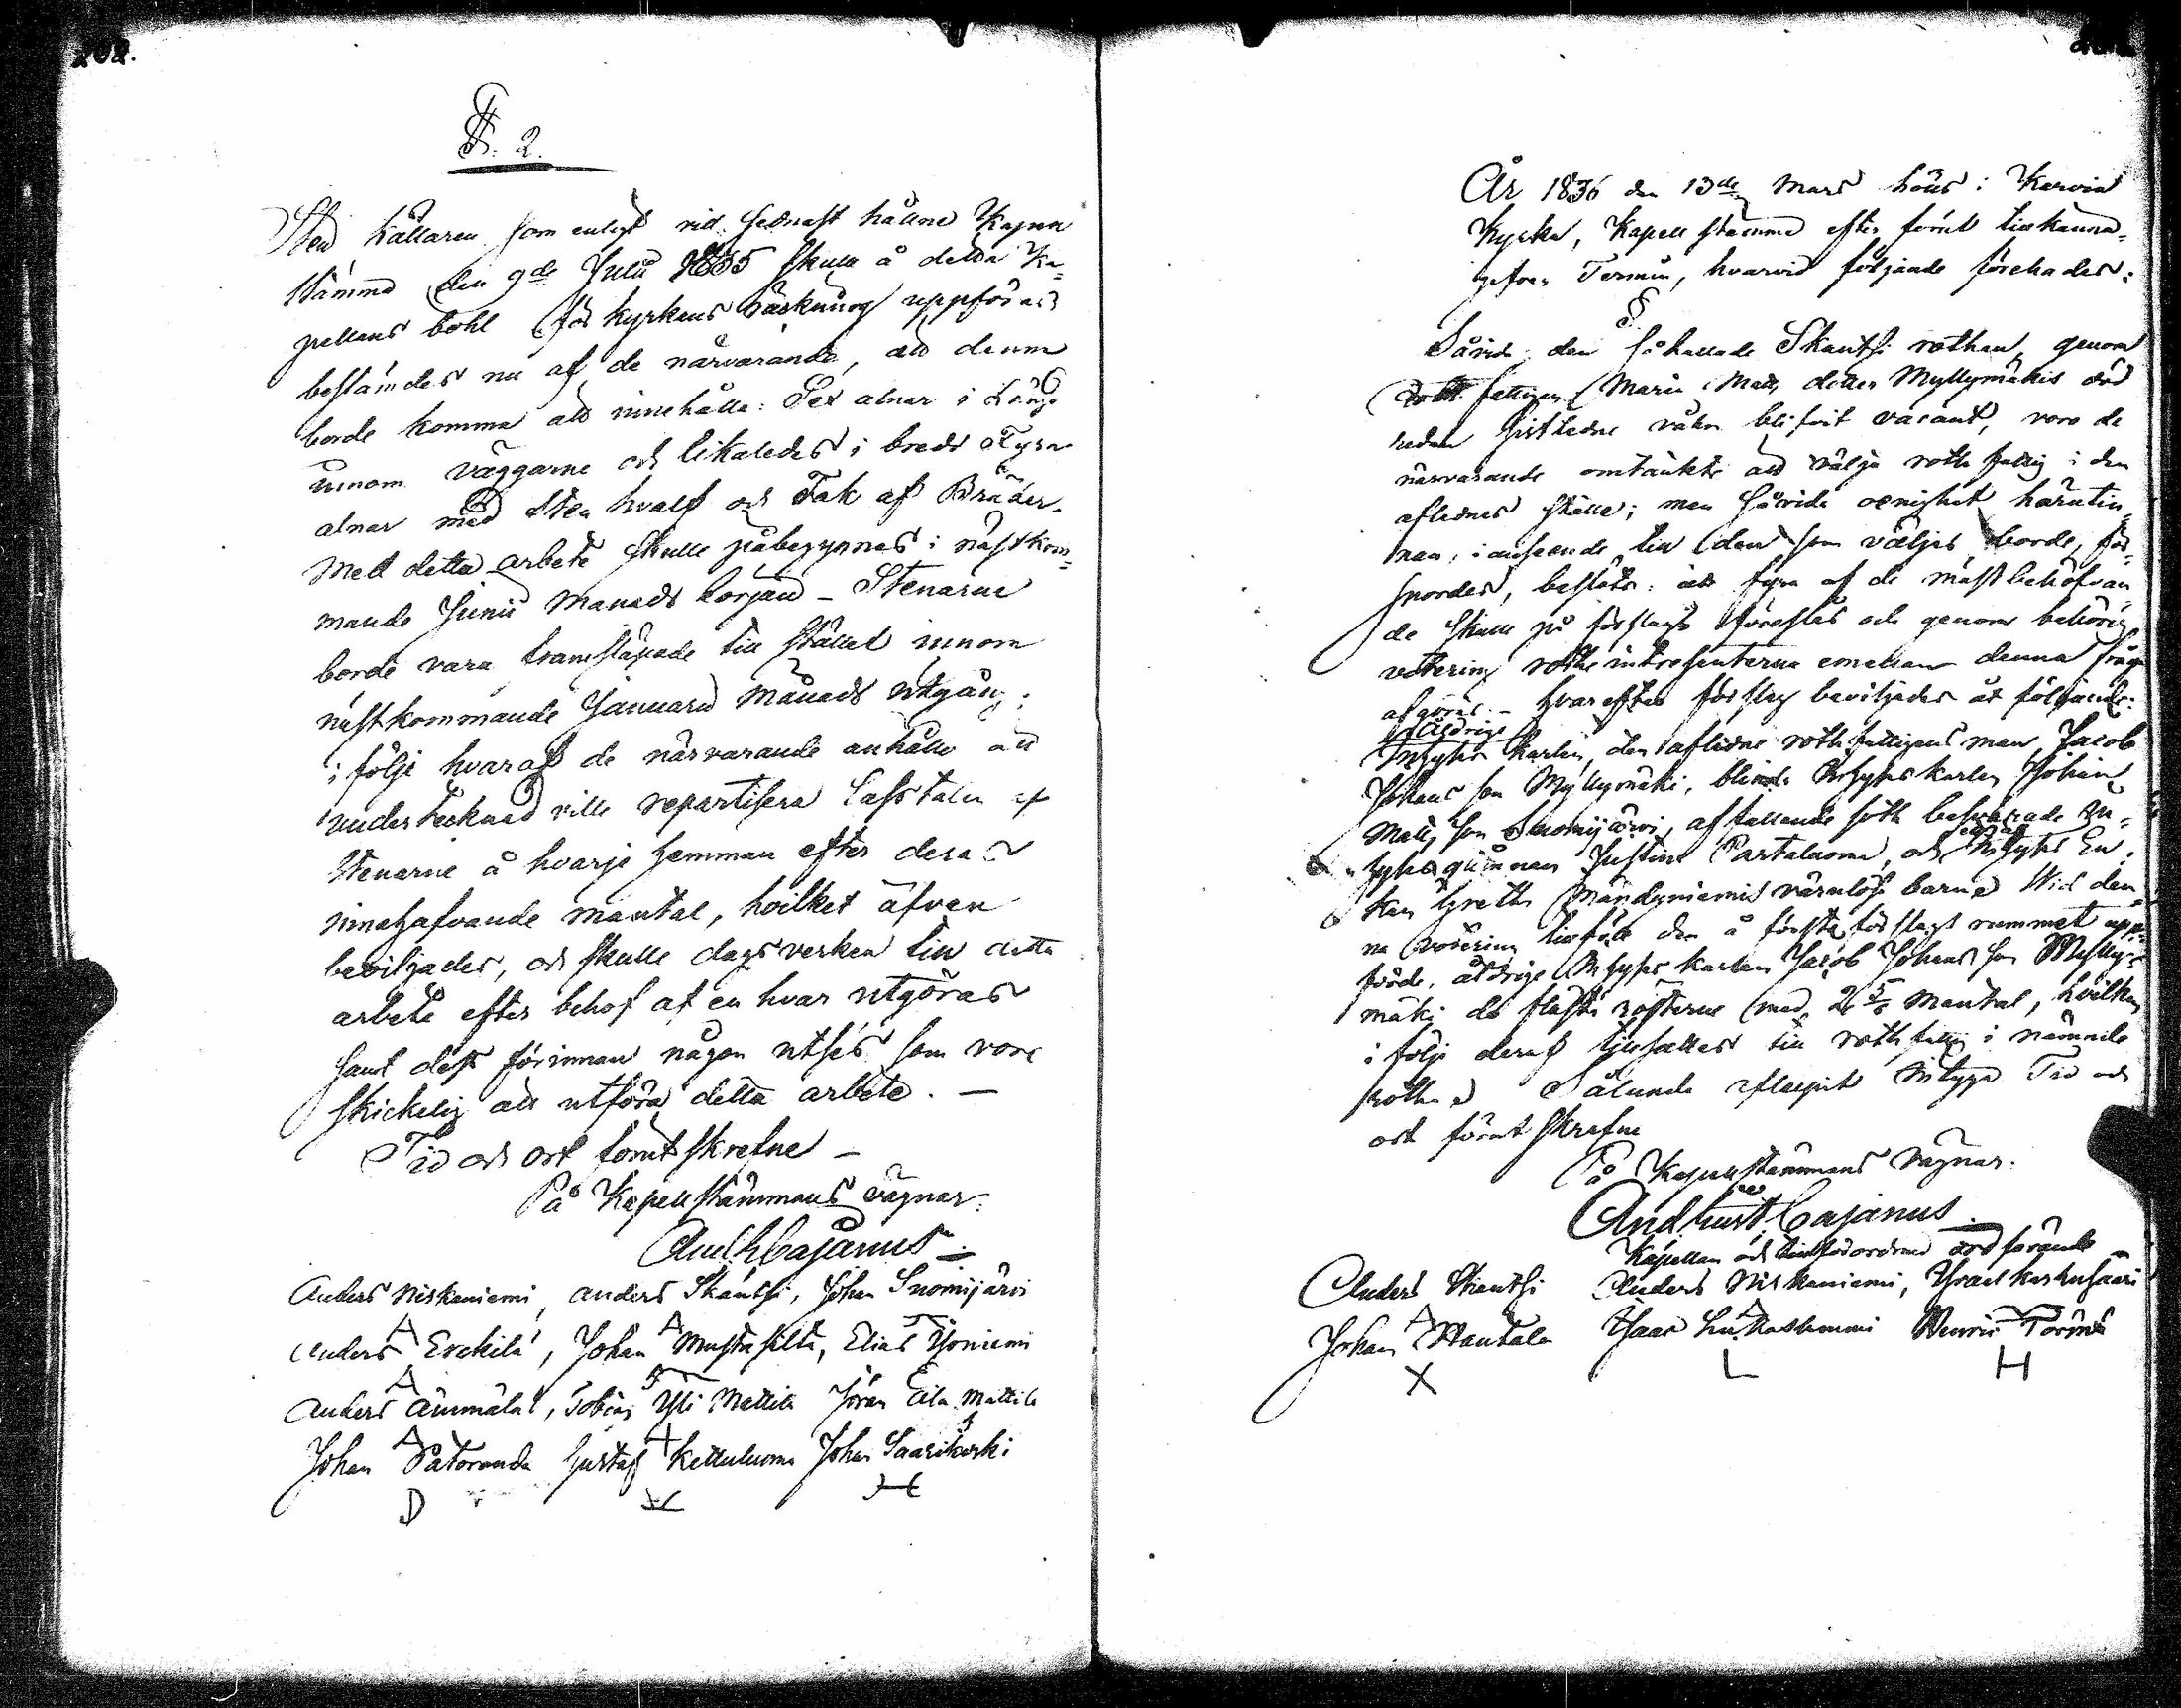 202.
§. 2.
Sten källaren som enligt vid sednast hållne Kapell
stämma den 9de Julii 1835 skulle å detta Ka=
pellans bohl för kyrkans räkning uppföras
bestämdes nu af de närvarande, att denna
borde komma att innehålla: Sex alnar i Längd
innom väggarne och likaledes i bredd Fyra
alnar med Sten hvalf och Tak af Bräder.
Med detta arbete skulle påbegynnas i nästkom=
mande Junii Månads början – Stenarne
borde vara framsläpade till stället innom
nästkommande Januarii Månads utgång;
i följe hvaraf de närvarande anhålla att
undertecknad ville repartisera Lasstalen af
Stenarne å hvarje hemman efter deras
innehafvande mantal, hvilket äfven
beviljades, och skulle dagsverken till detta
arbete efter behof af en hvar utgöras
samt dess förinnan någon utses som vore
skickelig att utföra detta arbete. –
Tid och ort förutskrefne –
På Kapellstämmans vägnar:
And h Cajanus
Anders Niskaniemi, Anders Skantsi, Johan Suomijärvi
Anders Erckilä, Johan Mustasilta, Elias Yoniemi
Anders Ämmälä, Tobias Yli Mattila Jöran Ala Mattila
Johan Patoranda Gustaf Kettuluoma Johan Saarikoski
År 1836 den 13de Mars hölls i Karvia
Kyrka, Kapell stämma efter förut tillkänna=
gifven Termin, hvarvid följande förehades:
§
Såvida den så kallade Skantsi rothan, genom
roth fattigen Maria Mats dotter Myllymäkis död
sedan sistledne våhr blifvit vacant, voro de
närvarande omtänkte att välja roth fattig i den
aflednes ställe; men såvida oenighet härutin=
nan, i anseende till den som väljas borde, för=
spordes, beslöts: att fyra af de mäst behöfvan
de skulle på förslag föreslås och genom behörig
votering rothe intressenterna emellan denna fråga
afgöras. – hvarefter förslag beviljades åt följande:
åldrige
Inhyses karlen, den aflidne roth fattigens man, Jacob
Johans son Myllymäki, blinde Inhyses karlen Johan
Mats son Suomijärvi, af fallande soth besvärade In=
hyses qvinnan Justina Partaluoma, och Inhyses En=
kan Greta Mändyniemis värnlösa barn. Vid den=
na votering tillföll den å första förslags rummet upp=
förde, åldrige Inhyses karlen Jacob Johans son Mylly=
mäki de flästa rösterne med 2 5/6 Mantal, hvilken
i följe deraf tillsattes till roth fattig i nämnde
rotha. Sålunda aflupit betyga Tid och
ort förut skrefne
På Kapellstämmans vägnar:
And Gust Cajanus
Kapellan och ordförande
Anders Skantsi Anders Niskaniemi, Israel Kaskusaari
Johan Rautala Isaac Henric Törmä